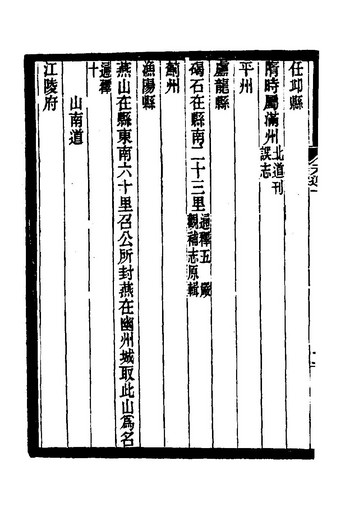 任邱縣
隋時屬滿州北道刊誤志
平州
盧龍縣
碣石在縣南二十三里通釋五嚴觀補志原輯
薊州
漁陽縣
燕山在縣東南六十里召公所封燕在幽州城取此山爲名
通釋十
山南道
江陵府